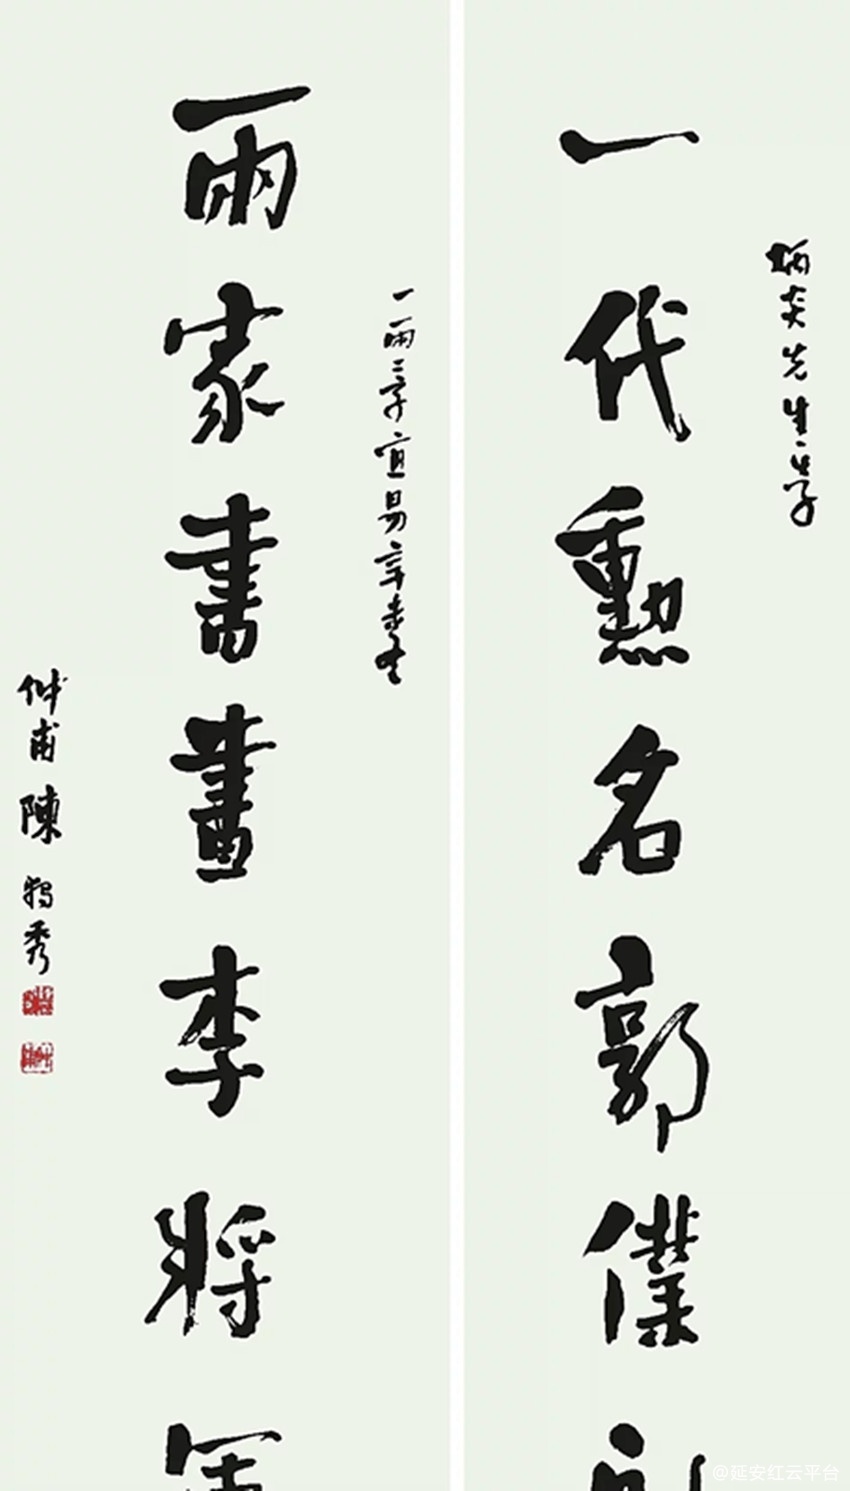 炳炎先生一笑
一代勳名郭僕
兩家書畫李將軍
一兩二字宜易辛未
仲甫陳獨秀
@延安红云平台